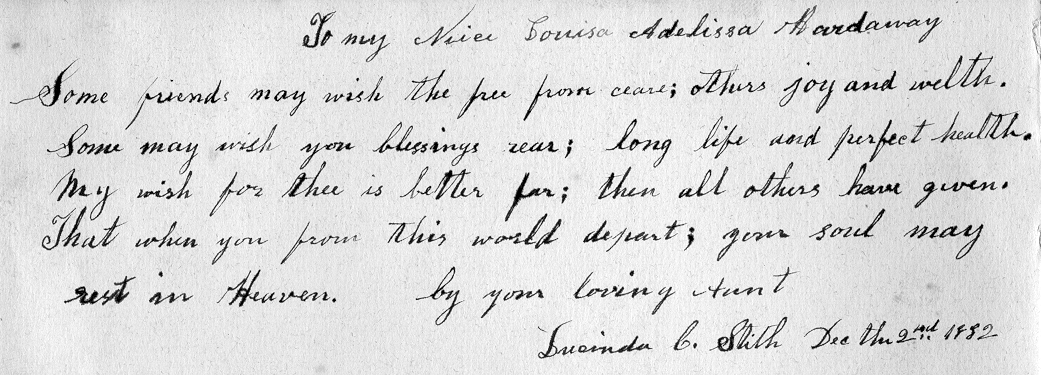 To my Niece Louisa Adelissa Hardaway
Some friends may wish the free from ceare; others joy and welth.
Some may wish you blessings rear; long life and perfect health.
My wish for thee is better far; then all others have given.
That when you from this world depart; your soul may
rest in Heaven. by your loving Aunt
Lucinda C. Stith Dec the 2nd 1882